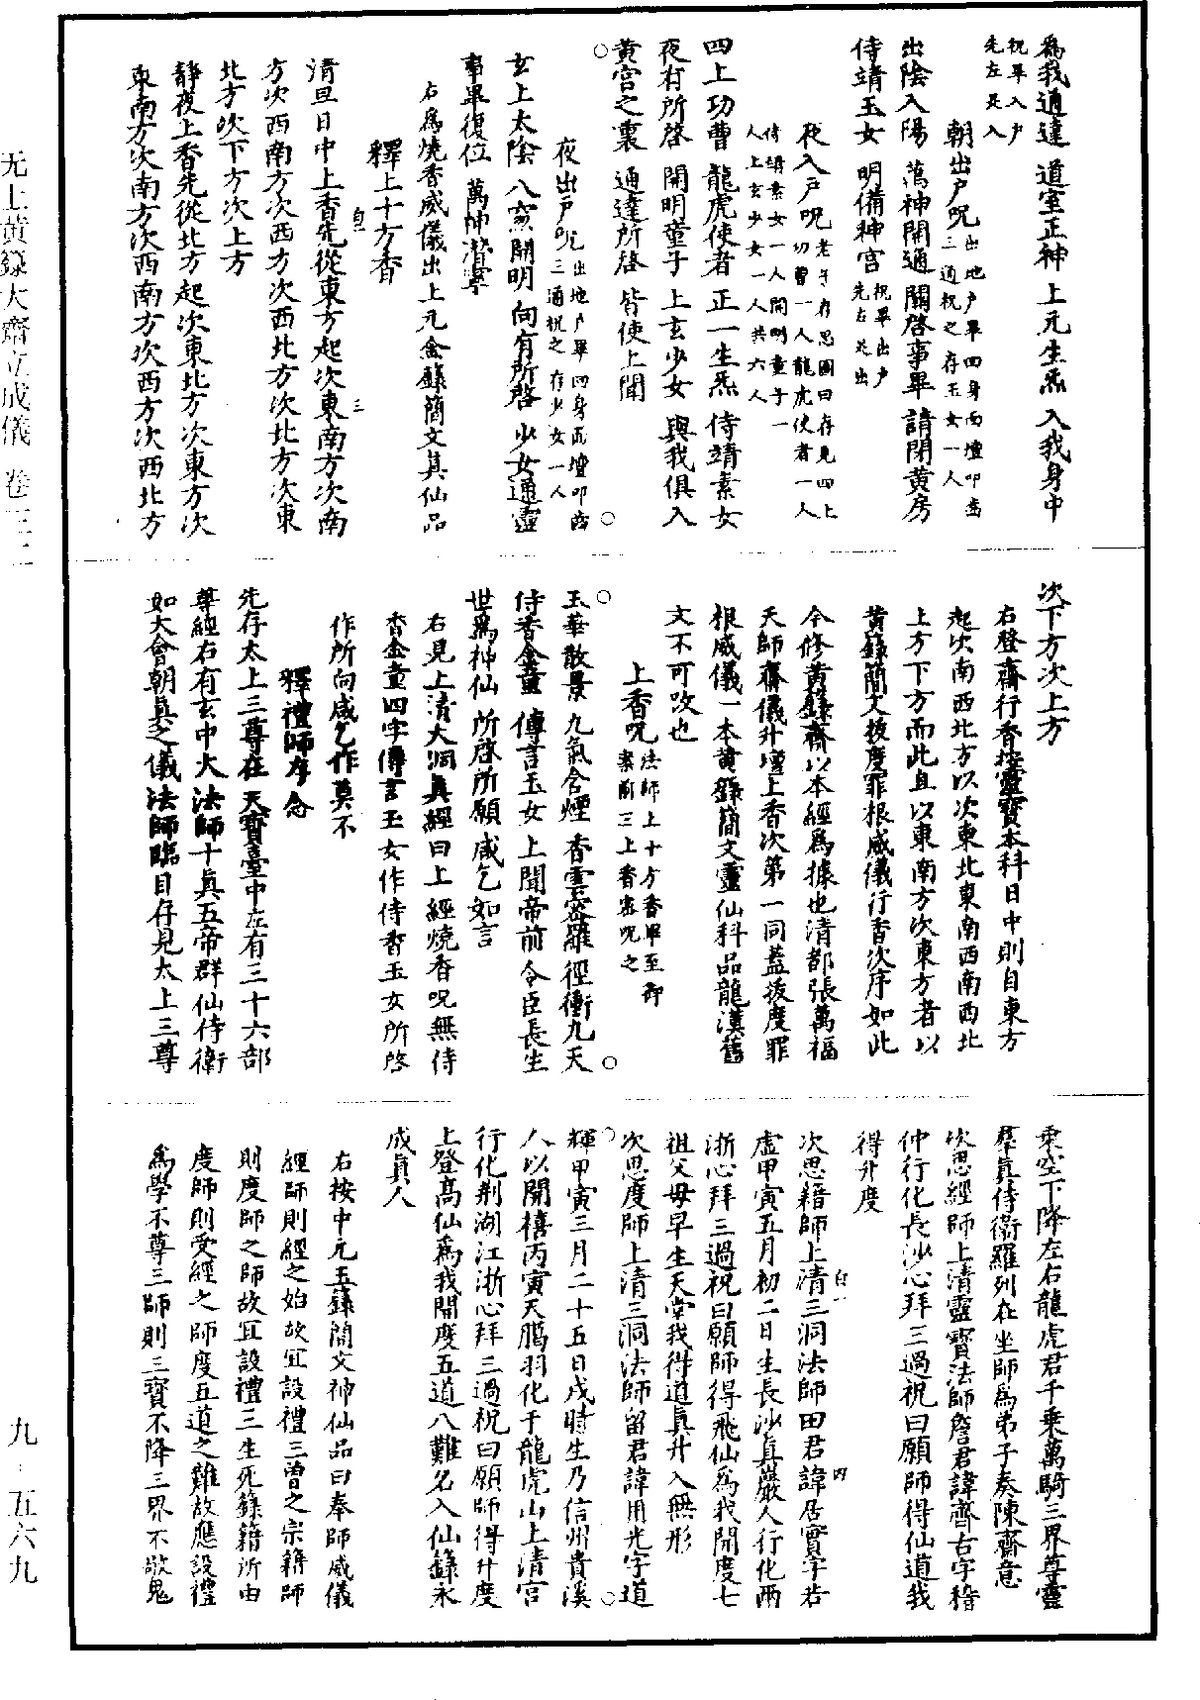 爲我通達 道室正神 上元生炁 入我身中
祝畢入戶
先左足入
朝出戶呪出地戶畢四身面壇叩齒
三通祝之存玉女一人
出陰入陽 萬神開通 關啓事畢 請閉黃房
侍靖玉女 明備神宮祝畢出戶
先右足出
夜入戶呪老子存思圖曰存見四上
功曹一人龍虎使者一人
侍靖素女一人開明童子一
人上玄少女一人共六人
四上功曹 龍虎使者 正一生炁 侍靖素女
夜有所啓 開明童子 上玄少女 與我俱入
黃宮之裏 通達所啓 皆使上聞
夜出戶呪出地戶畢四身面壇叩齒
三通祝之存少女一人
玄上太陰 八窓開明 向有所啓 少女通靈
事畢復位 萬神潛寧
右爲燒香威儀出上元金籙簡文眞仙品
釋上十方香
清旦日中上香先從東方起次東南方次南
方次西南方次西方次西北方次北方次東
北方次下方次上方
靜夜上香先從北方起次東北方次東方次
東南方次南方次西南方次西方次西北方
次下方次上方
右登齋行香按靈寶本科日中則自東方
起次南西北方以次東北東南西南西北
上方下方而此且以東南方次東方者以
黃籙簡文拔度罪根威儀行香次序如此
今修黃籙齋以本經爲據也清都張萬福
天師齋儀升壇上香次第一同蓋拔度罪
根威儀一本黃籙簡文靈仙科品龍漢舊
文不可改也
上香呪法師上十方香畢至御
案前三上香密呪之
玉華散景 九氣含煙 香雲密羅 徑衝九天
侍香金童 傳言玉女 上聞帝前 令臣長生
世爲神仙 所啓所願 咸乞如言
右見上清大洞眞經曰上經燒香呪無侍
香金童四字傳言玉女作侍香玉女所啓
作所向咸乞作莫不
釋禮師存念
先存太上三尊在天寶臺中左有三十六部
尊經右有玄中大法師十眞五帝群仙侍衛
如大會朝眞之儀法師臨目存見太上三尊
乘空下降左右龍虎君千乘萬騎三界尊靈
羣眞侍衛羅列在坐師爲弟子奏陳齋意
次思經師上清靈寶法師詹君諱齊古字稽
仲行化長沙心拜三過祝曰願師得仙道我
得升度
次思籍師上清三洞法師田君諱居實字若
虛甲寅五月初二日生長沙眞巖人行化兩
浙心拜三過祝曰願師得飛仙爲我開度七
祖父母早生天堂我得道眞升入無形
次思度師上清三洞法師留君諱用光字道
輝甲寅三月二十五日戌時生乃信州貴溪
人以開禧丙寅天臘羽化于龍虎山上清宮
行化荆湖江浙心拜三過祝曰願師得升度
上登高仙爲我開度五道八難名入仙籙永
成眞人
右按中元玉籙簡文神仙品曰奉師威儀
經師則經之始故宜設禮三曾之宗籍師
則度師之師故宜設禮三生死籙籍所由
度師則受經之師度五道之難故應設禮
爲學不尊三師則三寶不降三界不敬鬼
无上黃籙大齋立成儀 卷三二
九·五六九
白二
三
白一
四